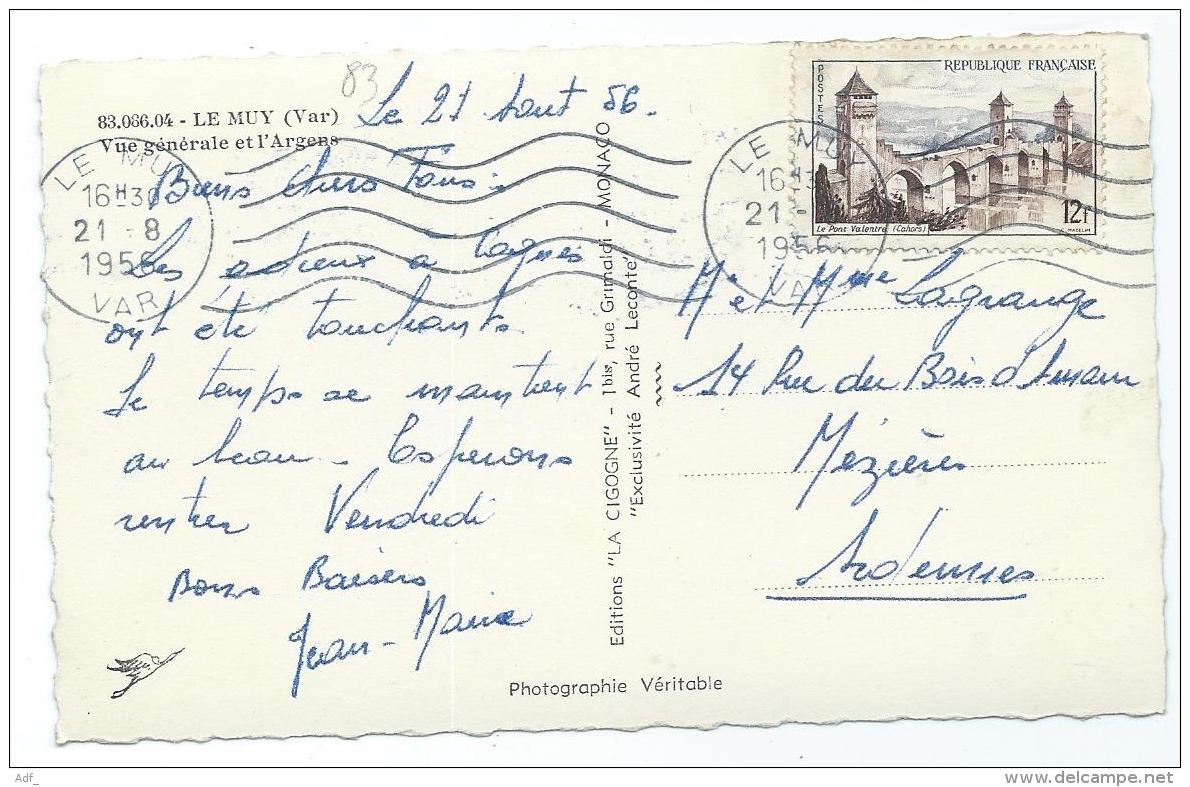 83
83.086.04 - LE MUY (Var)
Vue générale et l'Argens
Le 21 Aout 56.
LE MUY
16H30
21 - 8
1956
VAR
Chers Tous :
Les adieux a Cagnes
ont été touchants.
Le temps se maintient
au beau - Esperons
rentrer Vendredi
Bons Baisers
Jean-Marie
Editions "LA CIGOGNE" - 1 bis, rue Grimaldi - MONACO
"Exclusivité André Leconte"
Photographie Véritable
POSTES
REPUBLIQUE FRANÇAISE
12f
Le Pont Valentré (Cahors)
MAZELIN
LE MUY
16H3
21 -
1956
VA
Mr et Mme Lagrange
14 Rue du Bois d'Amour
Mézières
Ardennes
Adf_
delcampe.net